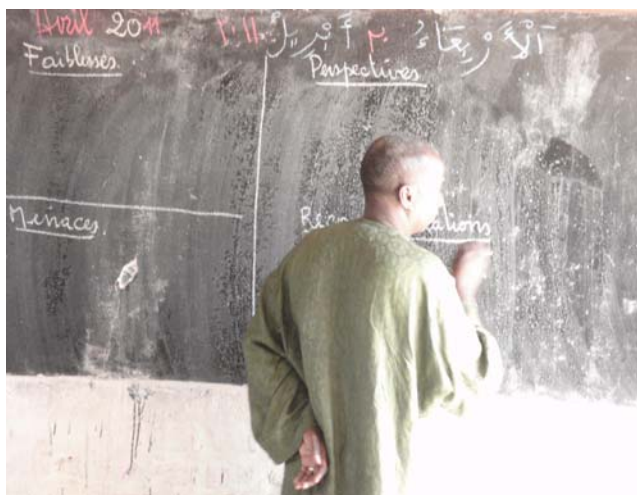 Avril 2011 اَلْأَرْبِعَاءُ ٢٠ أَبْرِيلْ ٢٠١١
Faiblesses. Perspectives
Menaces. Recommandations